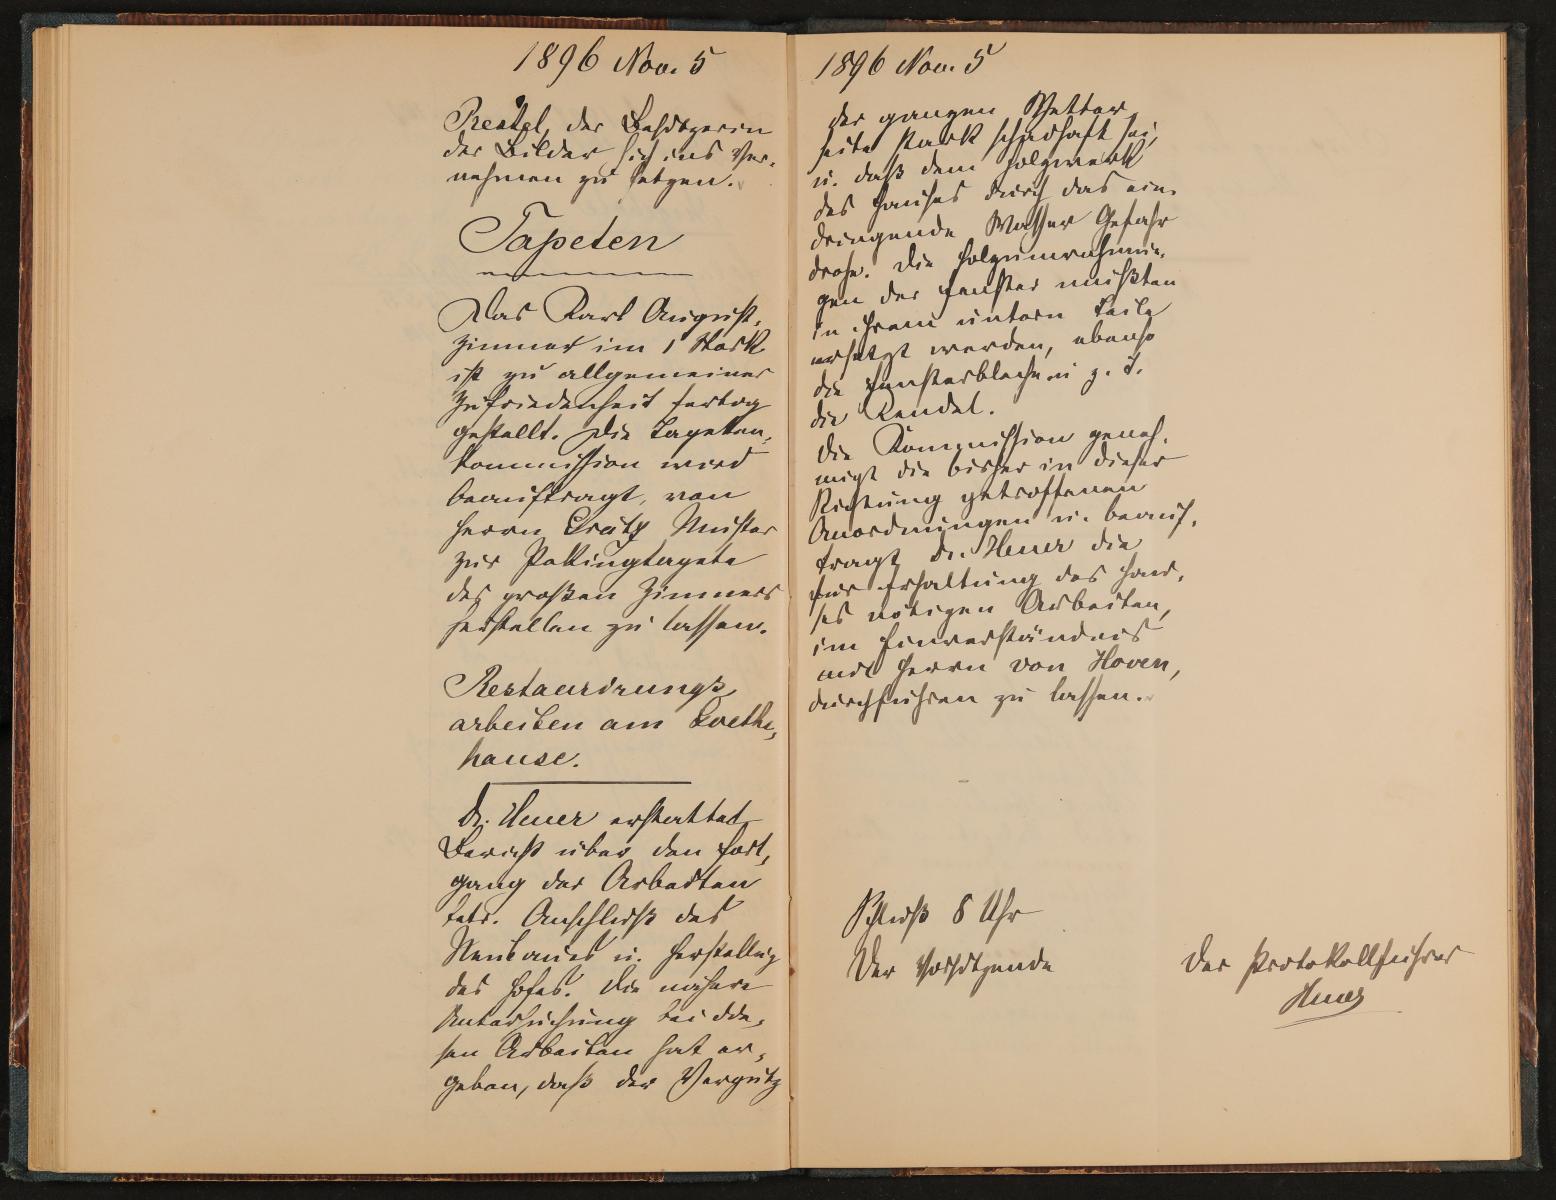 1896 Nov. 5
Restel, der Besitzerin
der Bilder sich ins Ver-
nehmen zu setzen.
Tapeten
Das Karl August-
zimmer im 1 Stock
ist zu allgemeiner
Zufriedenheit fertig
gestellt. Die Tapeten-
kommission wird
beauftragt, von
Herrn Muster
zur Pekingtapete
des großen Zimmers
herstellen zu lassen.
Restaurirungs-
arbeiten am Goethe-
hause.
Dr. Heuer erstattet
Bericht über den Fort-
gang der Arbeiten
betr. Anschluß des
Neubaues u. Herstellung
des Hofes. Die nähere
Untersuchung bei die-
sen Arbeiten hat er-
geben, daß der Verputz
1896 Nov. 5
der ganzen Wetter-
seite stark schadhaft sei,
u. daß dem Holzwerk
des Hauses durch das ein-
dringende Wasser Gefahr
drohe. Die Holzumrahmun-
gen der Fenster müßten
in ihrem untern Teile
ersetzt werden, ebenso
die Fensterbleche u z. T.
die Kandel.
Die Kommission geneh-
migt die bisher in dieser
Richtung getroffenen
Anordnungen u. beauf-
tragt Dr. Heuer die
für Erhaltung des Hau-
ses nötigen Arbeiten,
im Einverständnis
mit Herrn von Hoven,
durchführen zu lassen.
Schluß 8 Uhr
Der Vorsitzende
Der Protokollführer
Heuer